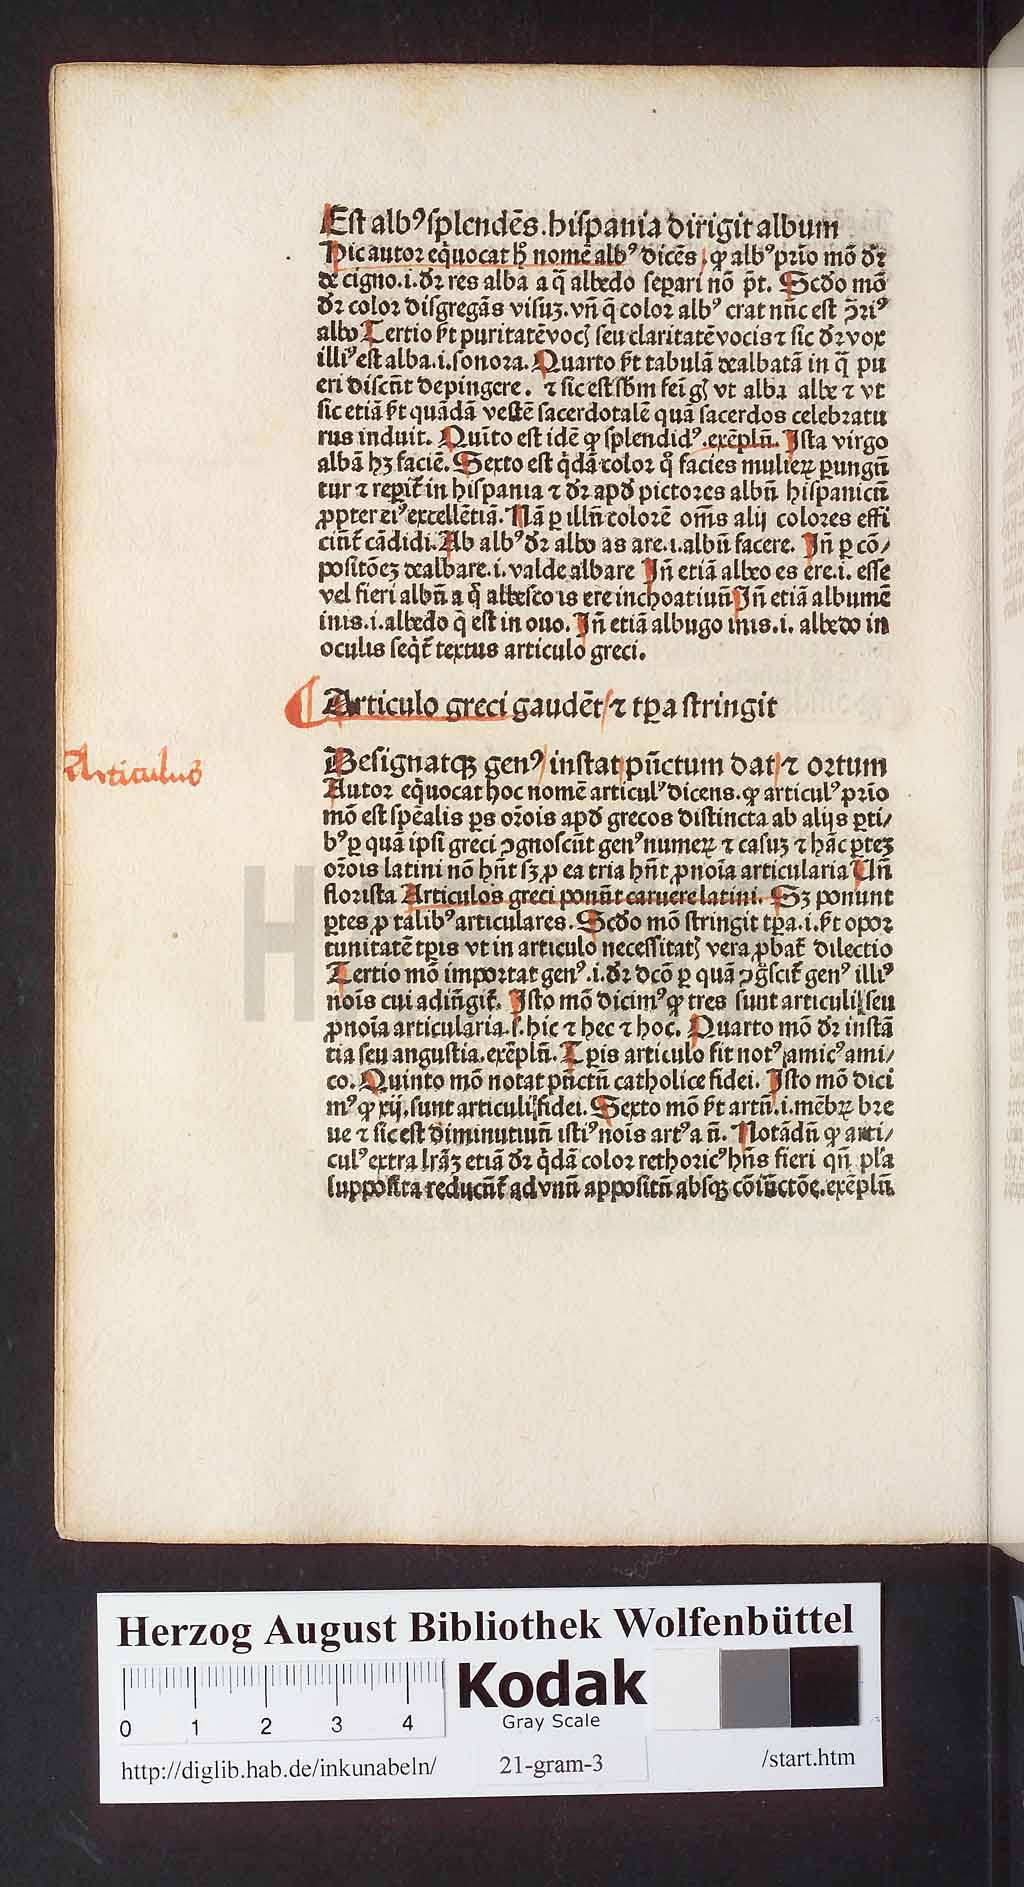 Est albꝰ splendēs. hispania dirigit album
Hic autor eq̇uocat hͦ nomē albꝰ dicēs, ꝙ albꝰ prīo mō dr̄
de cigno .i. dr̄ res alba a q̄ albedo separi nō pt̄. Scd̄o mō
dr̄ color disgregās visuꝫ. vn̄ q̄ color albꝰ erat nūc est ↄ̄riꝰ
albo Tertio st̄ puritatē vocꝭ seu claritatē vocis ⁊ sic dr̄ vox
illiꝰ est alba .i. sonora. Quarto st̄ tabulā dealbatā in q̄ pu
eri discūt depingere. ⁊ sic est sb̄m fei gꝭ vt alba albe ⁊ vt
sic etiā st̄ quādā vestē sacerdotalē quā sacerdos celebratu
rus induit. Quīto est idē ꝙ splendidꝰ. exēpln̄. Ista virgo
albā hꝫ faciē. Sexto est q̇dā color qͦ facies mulieꝝ pungūt
tur ⁊ reꝑit̄ in hispania ⁊ dr̄ apd̄ pictores albū hispanicū
ꝓpter eiꝰ excellētiā. Nā ꝑ illū colorē om̄s alij colores effi
ciūt̄ cādidi. Ab albꝰ dr̄ albo as are .i. albū facere. In̄ ꝑ cō/
positōeꝫ dealbare .i. valde albare In̄ etiā albeo es ere .i. esse
vel fieri albū a q̇ albesco is ere inchoatiuū In̄ etiā albumē
inis .i. albedo q̄ est in ouo. In̄ etiā albugo inis .i. albedo in
oculis seq̇t̄ textus articulo greci.
Articulo greci gaudēt ⁊ tꝑa stringit
Articulus
Designatqꝫ genꝰ instat pūctum dat ⁊ ortum
Autor eq̇uocat hoc nomē articulꝰ dicens. ꝙ articulꝰ prīo
mō est spēalis ps or̄ois apd̄ grecos distincta ab alijs ꝑti/
bꝰ ꝑ quā ipsi greci ↄgnoscūt genꝰ numeꝝ ⁊ casuꝫ ⁊ hāc ꝑteꝫ
or̄ois latini nō hn̄t sꝫ ꝓ ea tria hn̄t ꝓnoīa articularia Un̄
florista Articulos greci ponūt caruere latini. Sꝫ ponunt
ꝑtes ꝓ talibꝰ articulares. Scd̄o mō stringit tꝑa .i. st̄ opor
tunitatē tꝑis vt in articulo necessitatꝭ vera ꝓbat̄ dilectio
Tertio mō importat genꝰ .i. dr̄ dc̄o ꝑ quā ↄgscit̄ genꝰ illiꝰ
noīs cui adiūgit̄. Isto mō dicimꝰ ꝙ tres sunt articuli seu
ꝓnoīa articularia .s. hic ⁊ hec ⁊ hoc. Quarto mō dr̄ instā
tia seu angustia. exēpln̄. Tꝑis articulo fit notꝰ amicꝰ ami/
co. Quinto mō notat pūctū catholice fidei. Isto mō dici
mꝰ ꝙ xij. sunt articuli fidei. Sexto mō st̄ artū .i. mēbꝝ bre
ue ⁊ sic est diminutiuū istiꝰ noīs artꝰ a ū. Notādū ꝙ arti/
culꝰ extra lrāꝫ etiā dr̄ q̇dā color rethoricꝰ hn̄s fieri qn̄ pl̄a
supposita reducūt̄ ad vnū appositū absqꝫ cōiūctōe. exēpln̄
Herzog August Bibliothek Wolfenbüttel
0 1 2 3 4
Kodak
Gray Scale
http://diglib.hab.de/inkunabeln/
21-gram-3
/start.htm
HAB